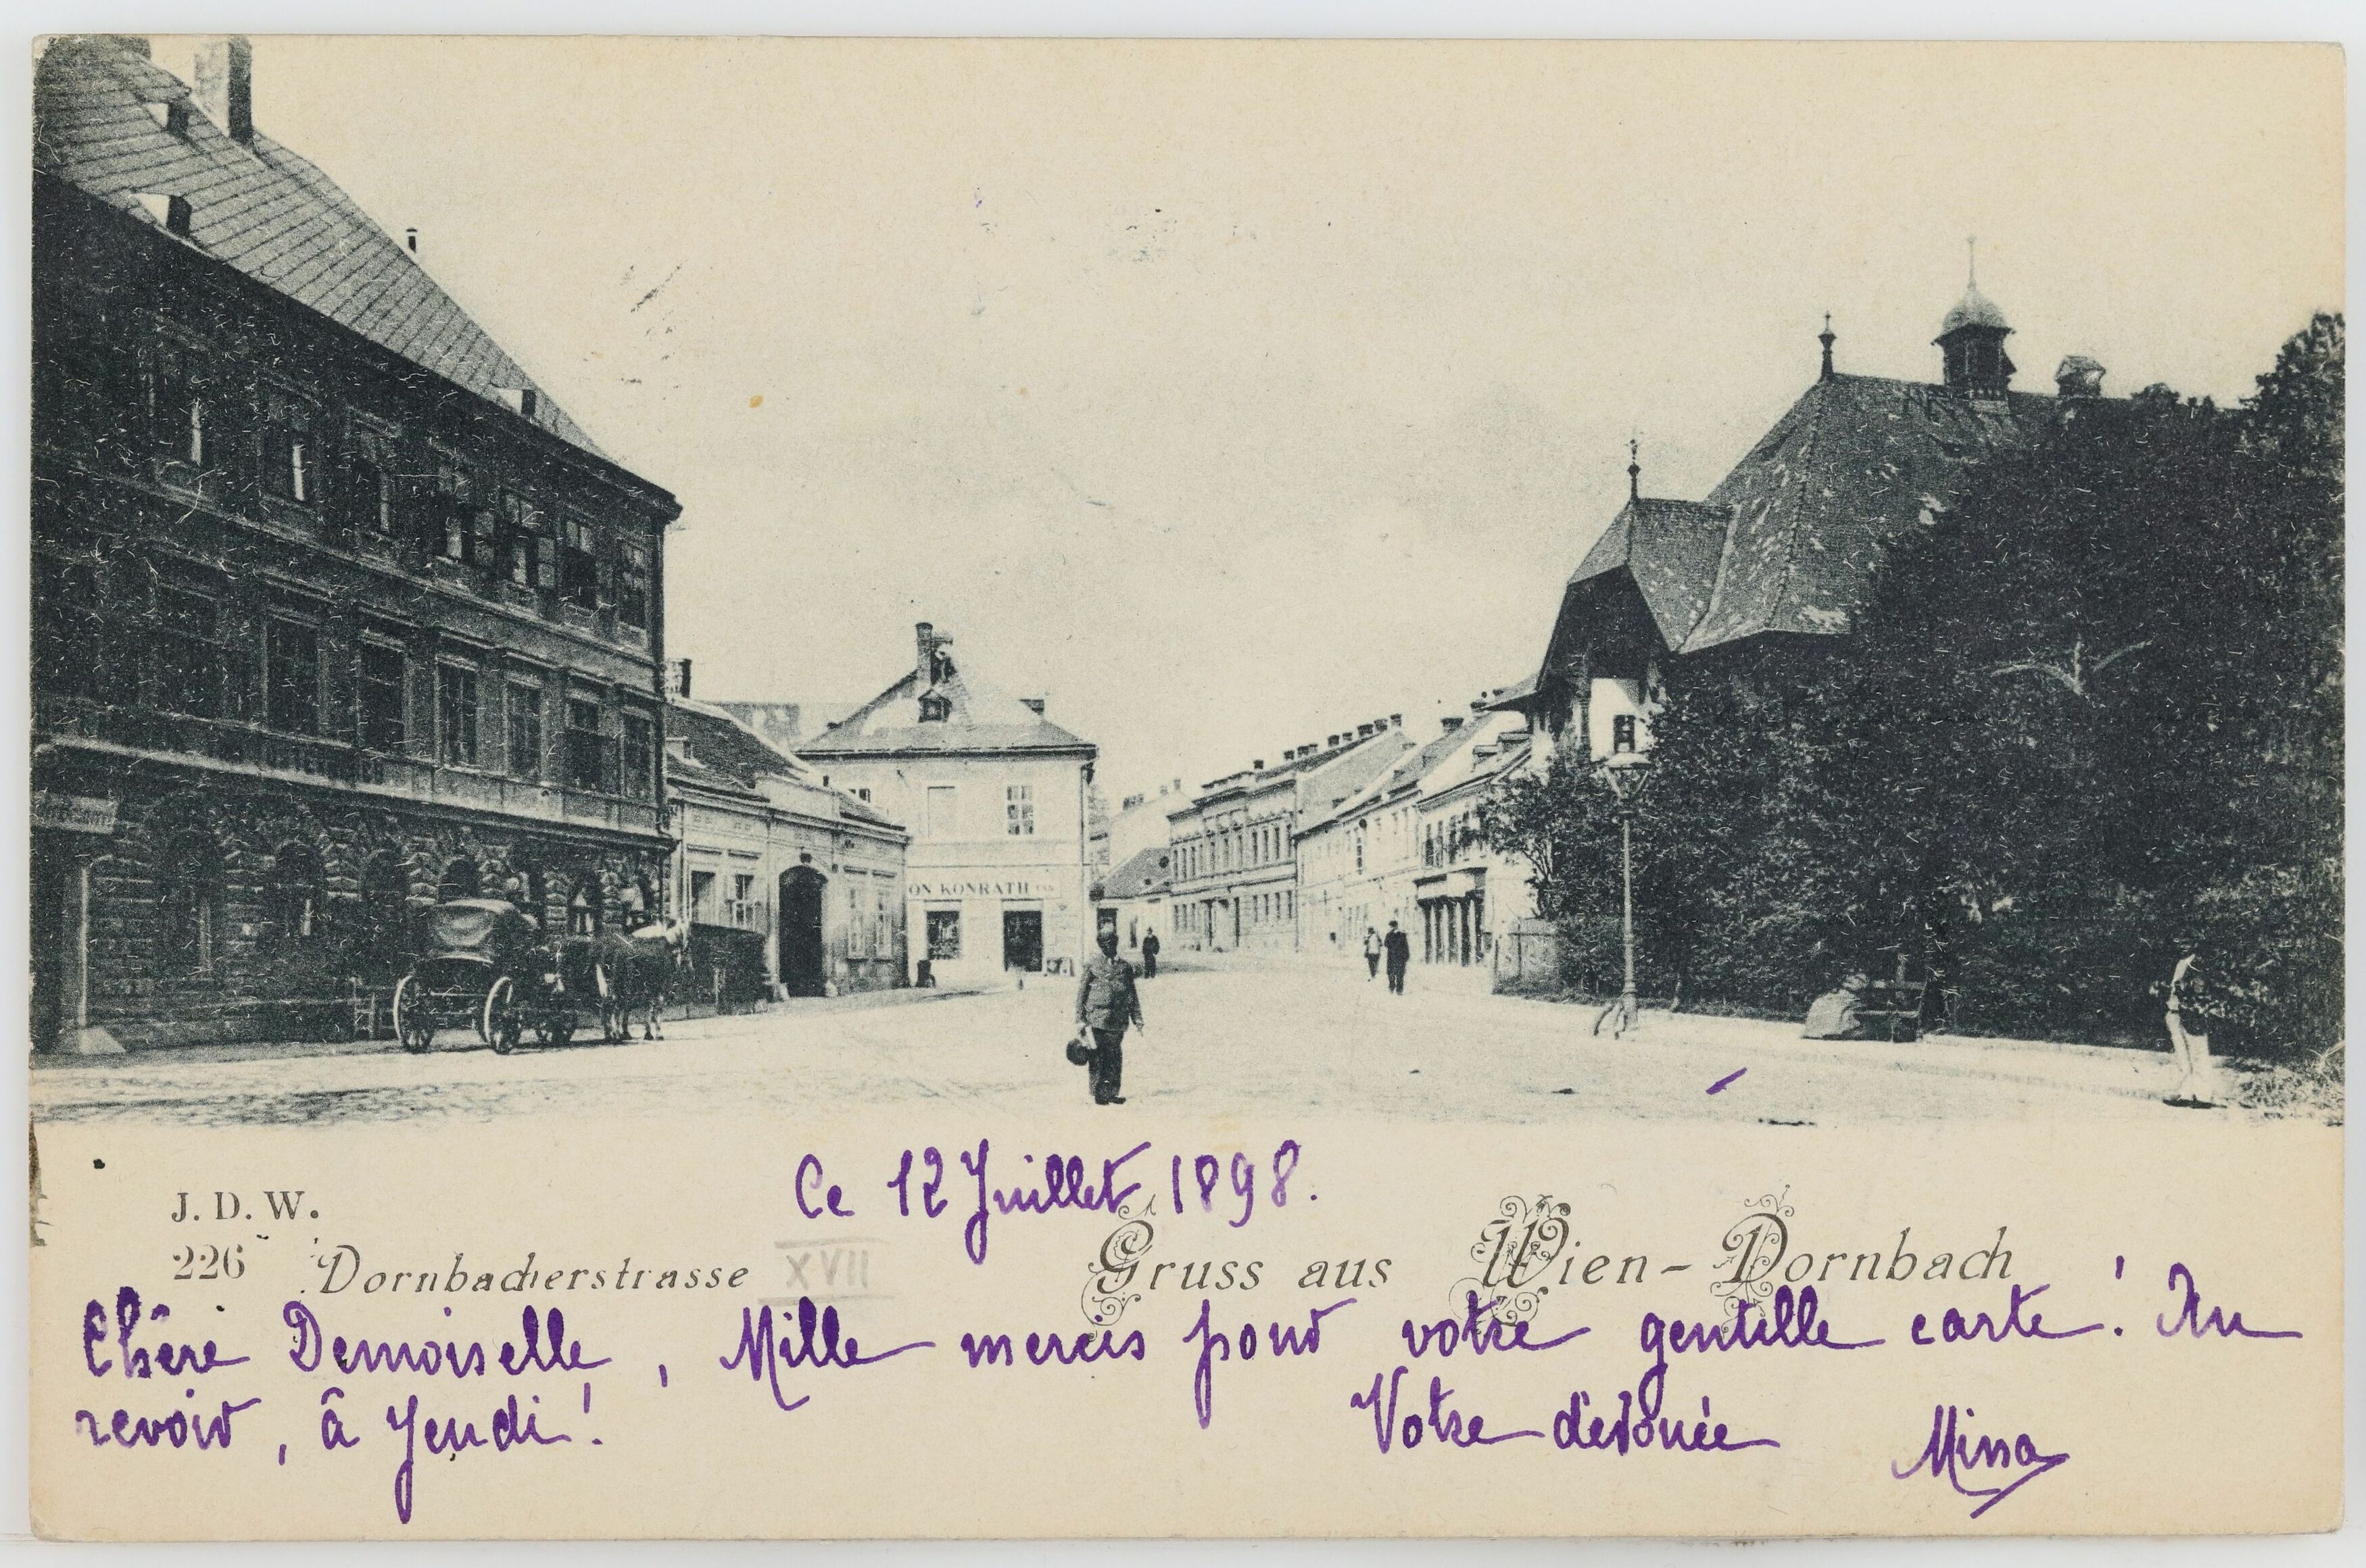 ON KONRATH
Ce 12 Juillet 1898.
J. D. W.
226 Dornbacherstrasse
XVII
Gruss aus Wien-Dornbach
Chère Demoiselle, Mille mercis pour votre gentille carte! Au
revoir, à Jeudi!
Votre dévouée Minna